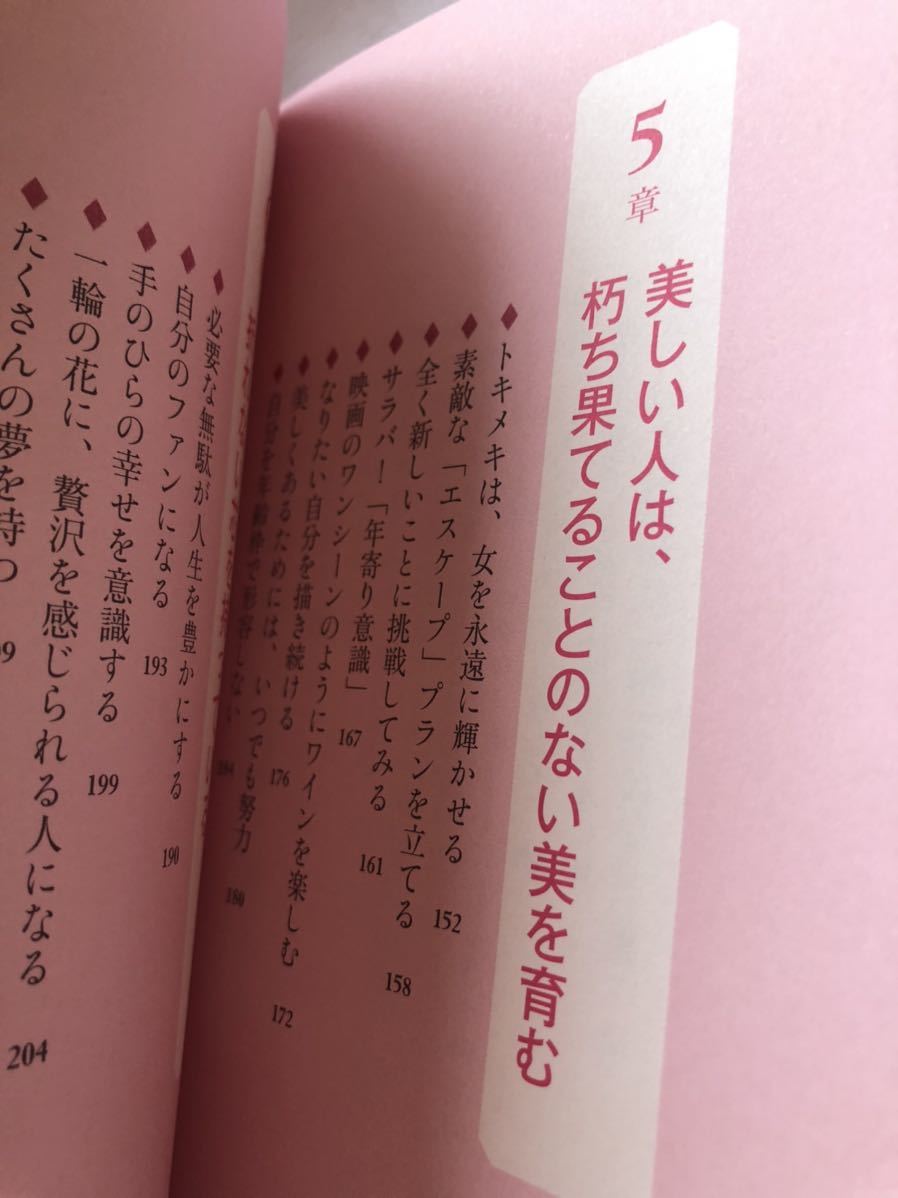 5章
美しい人は、
朽ち果てることのない美を育む
◆トキメキは、女を永遠に輝かせる 152
◆素敵な「エスケープ」プランを立てる 158
◆全く新しいことに挑戦してみる 161
◆サラバ！「年寄り意識」 167
◆映画のワンシーンのようにワインを楽しむ 172
◆なりたい自分を描き続ける 176
◆美しくあるためには、いつでも努力 180
◆自分を年齢枠で形容しない 184
◆必要な無駄が人生を豊かにする 190
◆自分のファンになる 193
◆手のひらの幸せを意識する 199
◆一輪の花に、贅沢を感じられる人になる 204
◆たくさんの夢を持つ